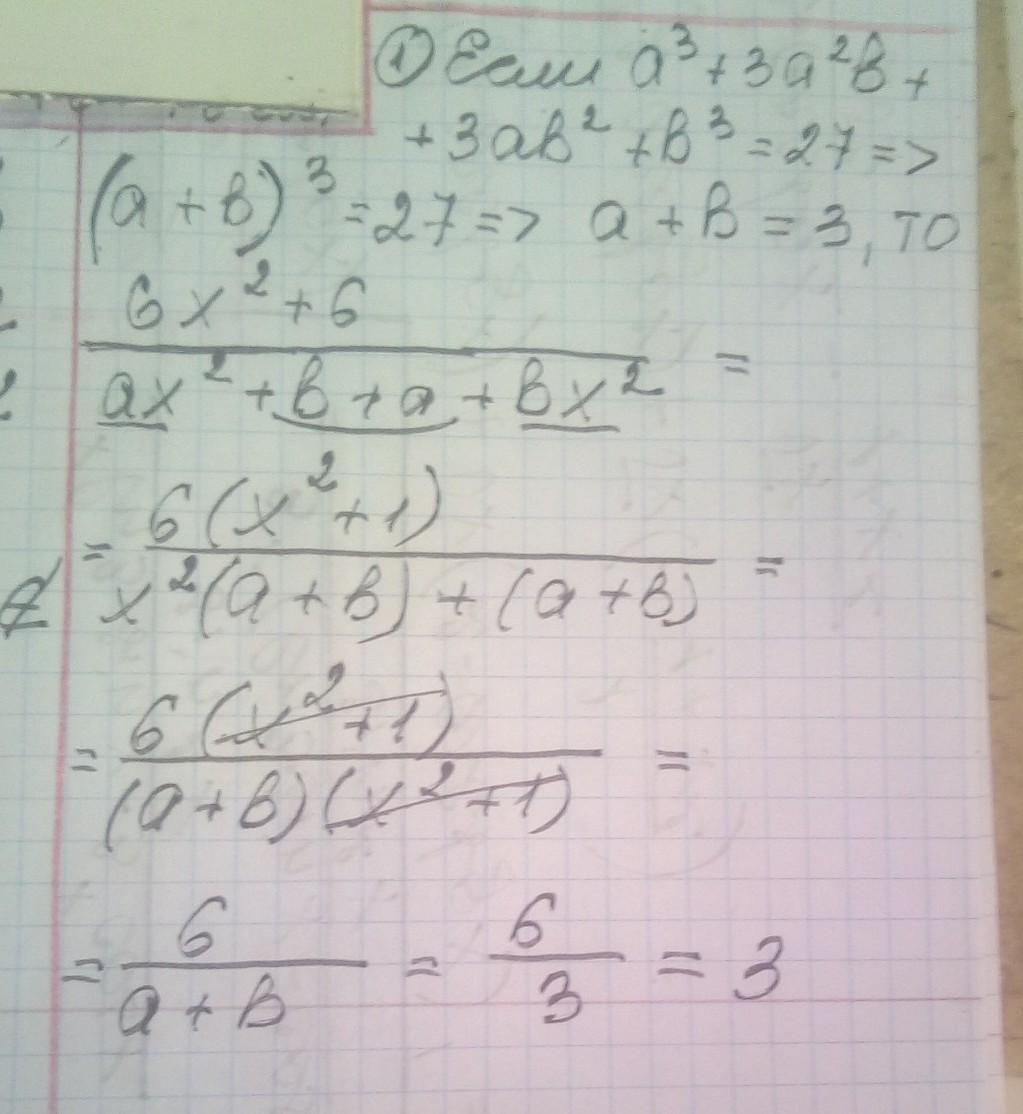 ① Если a³ + 3a²b +
+ 3ab² + b³ = 27 =>
(a + b)³ = 27 => a + b = 3, то
6x² + 6
ax² + b + a + bx² =
= 6(x² + 1)
x²(a + b) + (a + b) =
= 6(x² + 1)
(a + b)(x² + 1) =
= 6 / (a + b) = 6 / 3 = 3